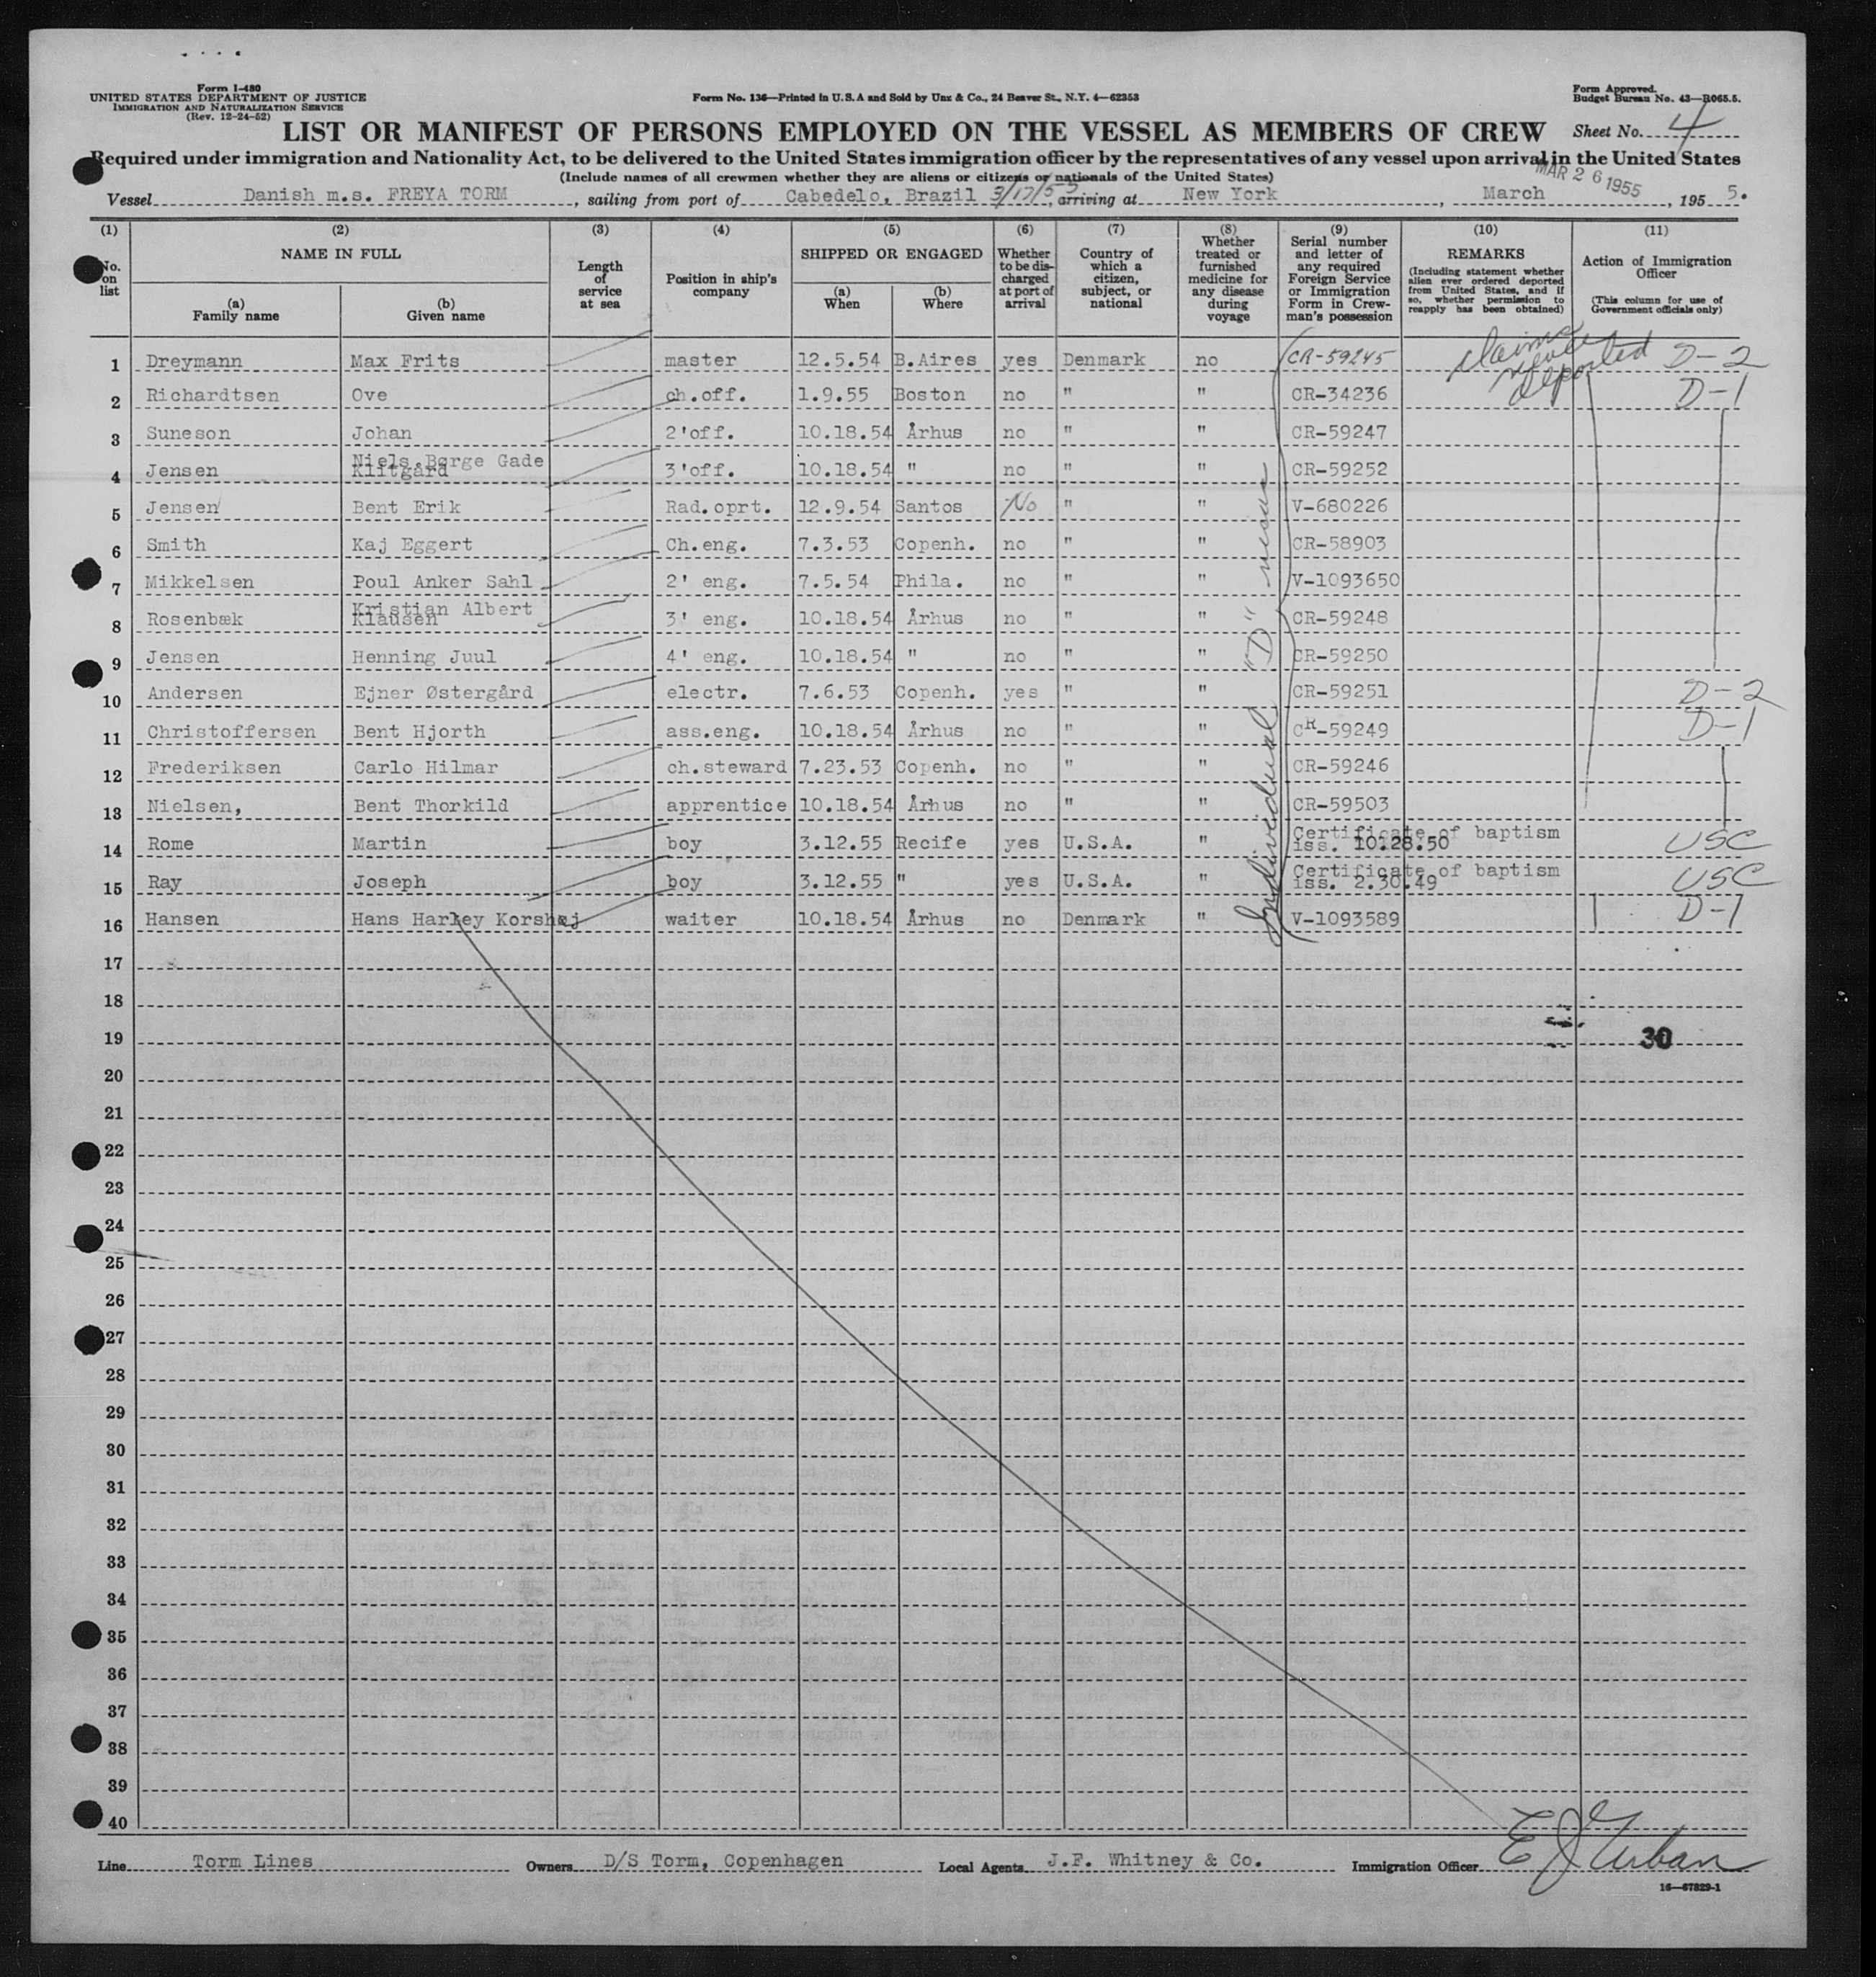 Form I-480
UNITED STATES DEPARTMENT OF JUSTICE
IMMIGRATION AND NATURALIZATION SERVICE
(Rev. 12-24-52)
Form No. 136—Printed in U.S.A and Sold by Unz & Co., 24 Beaver St., N.Y. 4—62353
Form Approved.
Budget Bureau No. 43—R065.5.
LIST OR MANIFEST OF PERSONS EMPLOYED ON THE VESSEL AS MEMBERS OF CREW Sheet No. 4
Required under immigration and Nationality Act, to be delivered to the United States immigration officer by the representatives of any vessel upon arrival in the United States
(Include names of all crewmen whether they are aliens or citizens or nationals of the United States)
MAR 26 1955
Vessel Danish m.s. FREYA TORM, sailing from port of Cabedelo, Brazil 3/17/55, arriving at New York, March, 195 5.
(1) No. on list
(2) NAME IN FULL (a) Family name (b) Given name
(3) Length of service at sea
(4) Position in ship's company
(5) SHIPPED OR ENGAGED (a) When (b) Where
(6) Whether to be discharged at port of arrival
(7) Country of which a citizen, subject, or national
(8) Whether treated or furnished medicine for any disease during voyage
(9) Serial number and letter of any required Foreign Service or Immigration Form in Crewman's possession
(10) REMARKS (Including statement whether alien ever ordered deported from United States, and if so, whether permission to reapply has been obtained)
(11) Action of Immigration Officer (This column for use of Government officials only)
1 Dreymann Max Frits master 12.5.54 B.Aires yes Denmark no CR-59245 claims never deported D-2
2 Richardtsen Ove ch.off. 1.9.55 Boston no " " CR-34236 D-1
3 Suneson Johan 2'off. 10.18.54 Århus no " " CR-59247
4 Jensen Niels Børge Gade Klitgård 3'off. 10.18.54 " no " " CR-59252
5 Jensen Bent Erik Rad.oprt. 12.9.54 Santos No " " V-680226
6 Smith Kaj Eggert Ch.eng. 7.3.53 Copenh. no " " CR-58903
7 Mikkelsen Poul Anker Sahl 2' eng. 7.5.54 Phila. no " " V-1093650
8 Rosenbæk Kristian Albert Klausen 3' eng. 10.18.54 Århus no " " CR-59248
9 Jensen Henning Juul 4' eng. 10.18.54 " no " " CR-59250
10 Andersen Ejner Østergård electr. 7.6.53 Copenh. yes " " CR-59251 D-2
11 Christoffersen Bent Hjorth ass.eng. 10.18.54 Århus no " " CR-59249 D-1
12 Frederiksen Carlo Hilmar ch.steward 7.23.53 Copenh. no " " CR-59246
13 Nielsen, Bent Thorkild apprentice 10.18.54 Århus no " " CR-59503
14 Rome Martin boy 3.12.55 Recife yes U.S.A. " Certificate of baptism iss. 10.28.50 USC
15 Ray Joseph boy 3.12.55 " yes U.S.A. " Certificate of baptism iss. 2.30.49 USC
16 Hansen Hans Harley Korshøj waiter 10.18.54 Århus no Denmark " V-1093589 D-1
Individual "D" visas
17
18
19
30
20
21
22
23
24
25
26
27
28
29
30
31
32
33
34
35
36
37
38
39
40
Line Torm Lines Owners D/S Torm, Copenhagen Local Agents J.F. Whitney & Co. Immigration Officer E J Urban
16—67829-1